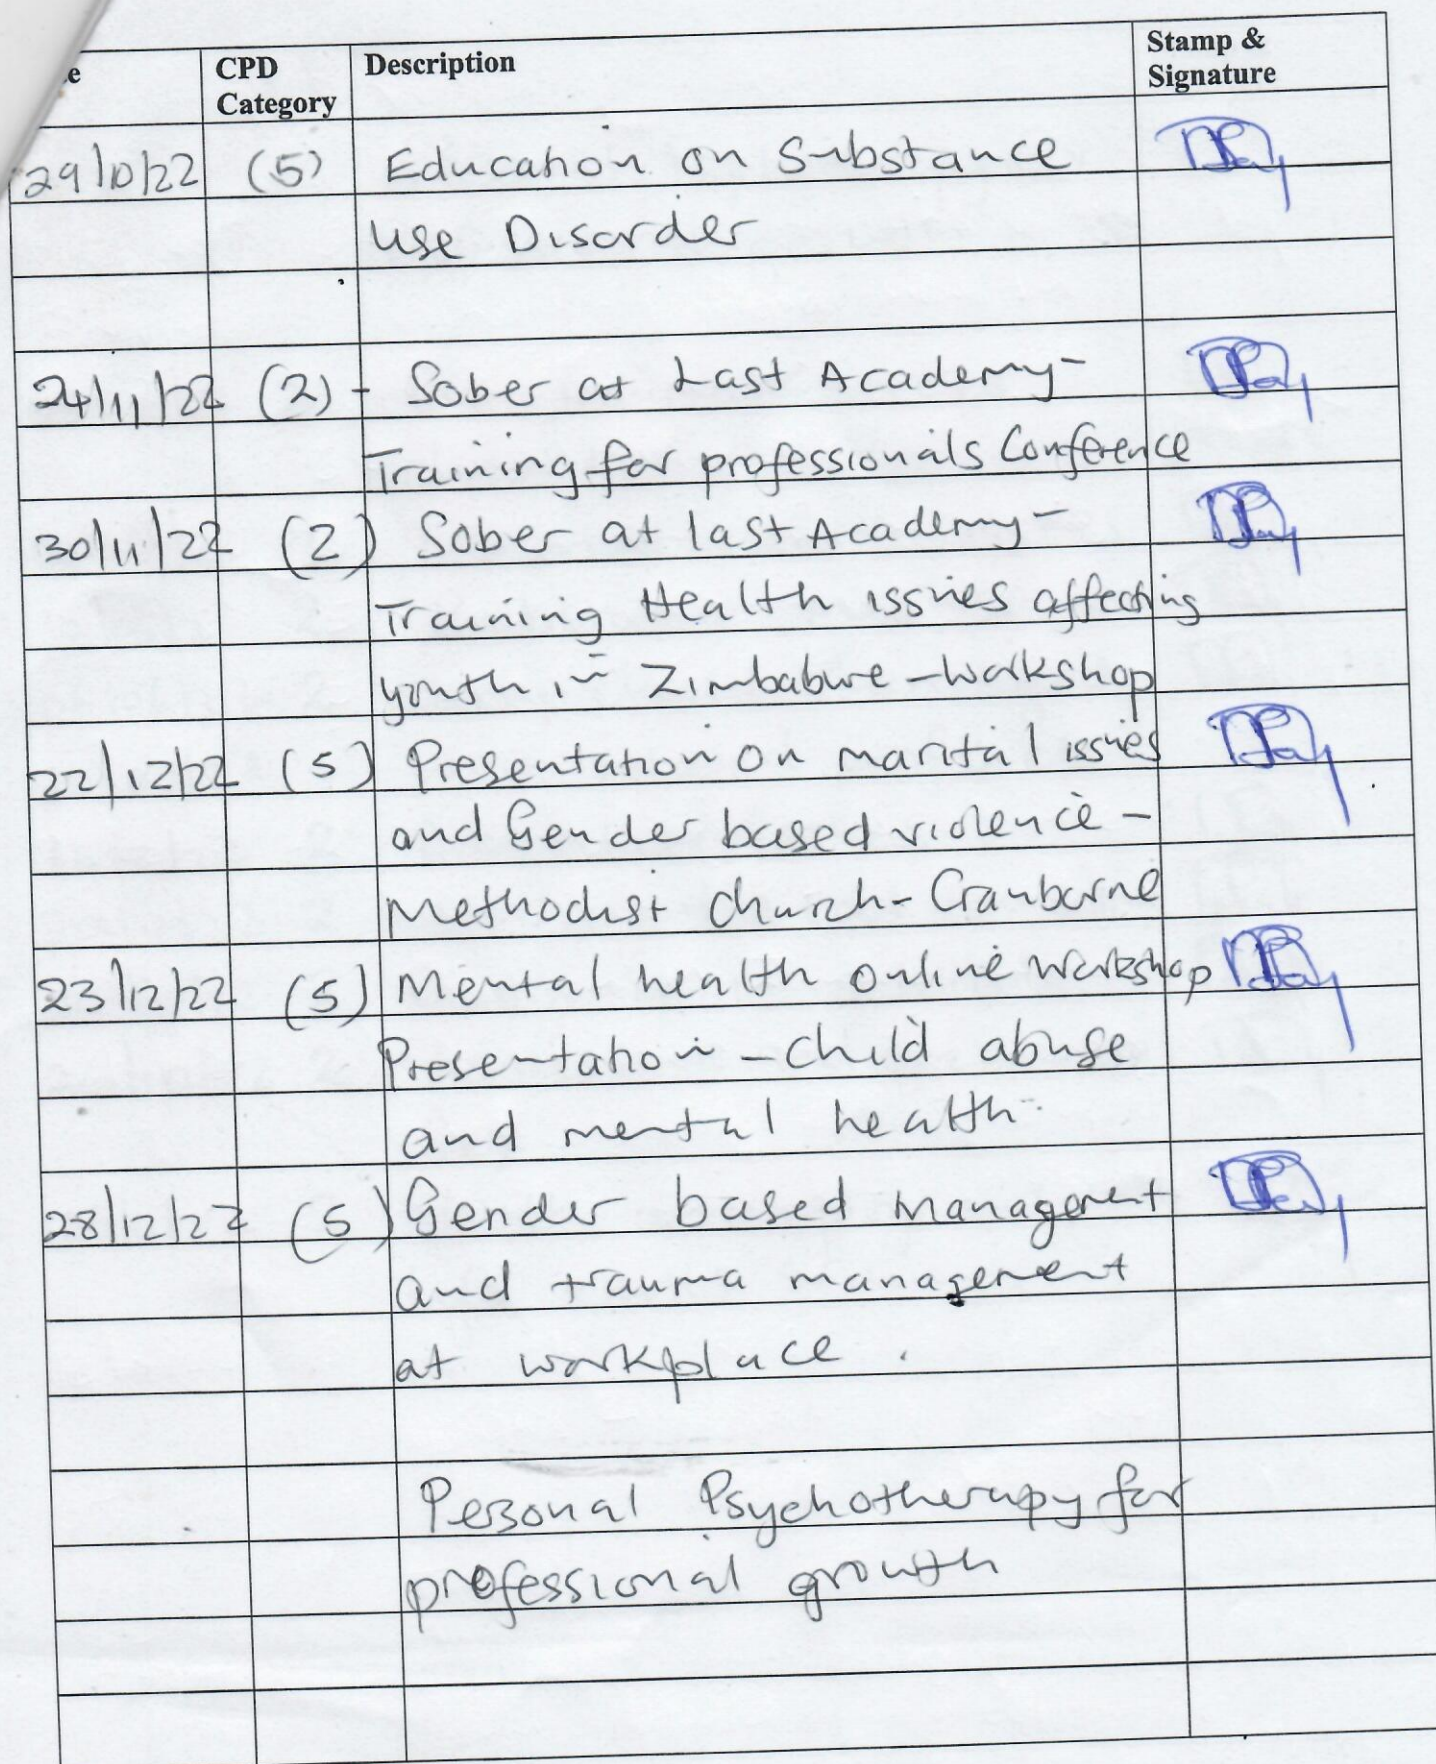 e CPD Category Description Stamp & Signature
29/10/22 (5) Education on Substance
use Disorder
24/11/22 (2) - Sober at Last Academy-
Training for professionals Conference
30/11/22 (2) Sober at last Academy-
Training Health issues affecting
youth in Zimbabwe - workshop
22/12/22 (5) Presentation on marital issues
and Gender based violence -
Methodist church - Cranborne
23/12/22 (5) Mental health online workshop
Presentation - child abuse
and mental health
28/12/22 (5) Gender based management
and trauma management
at workplace.
Personal Psychotherapy for
professional growth